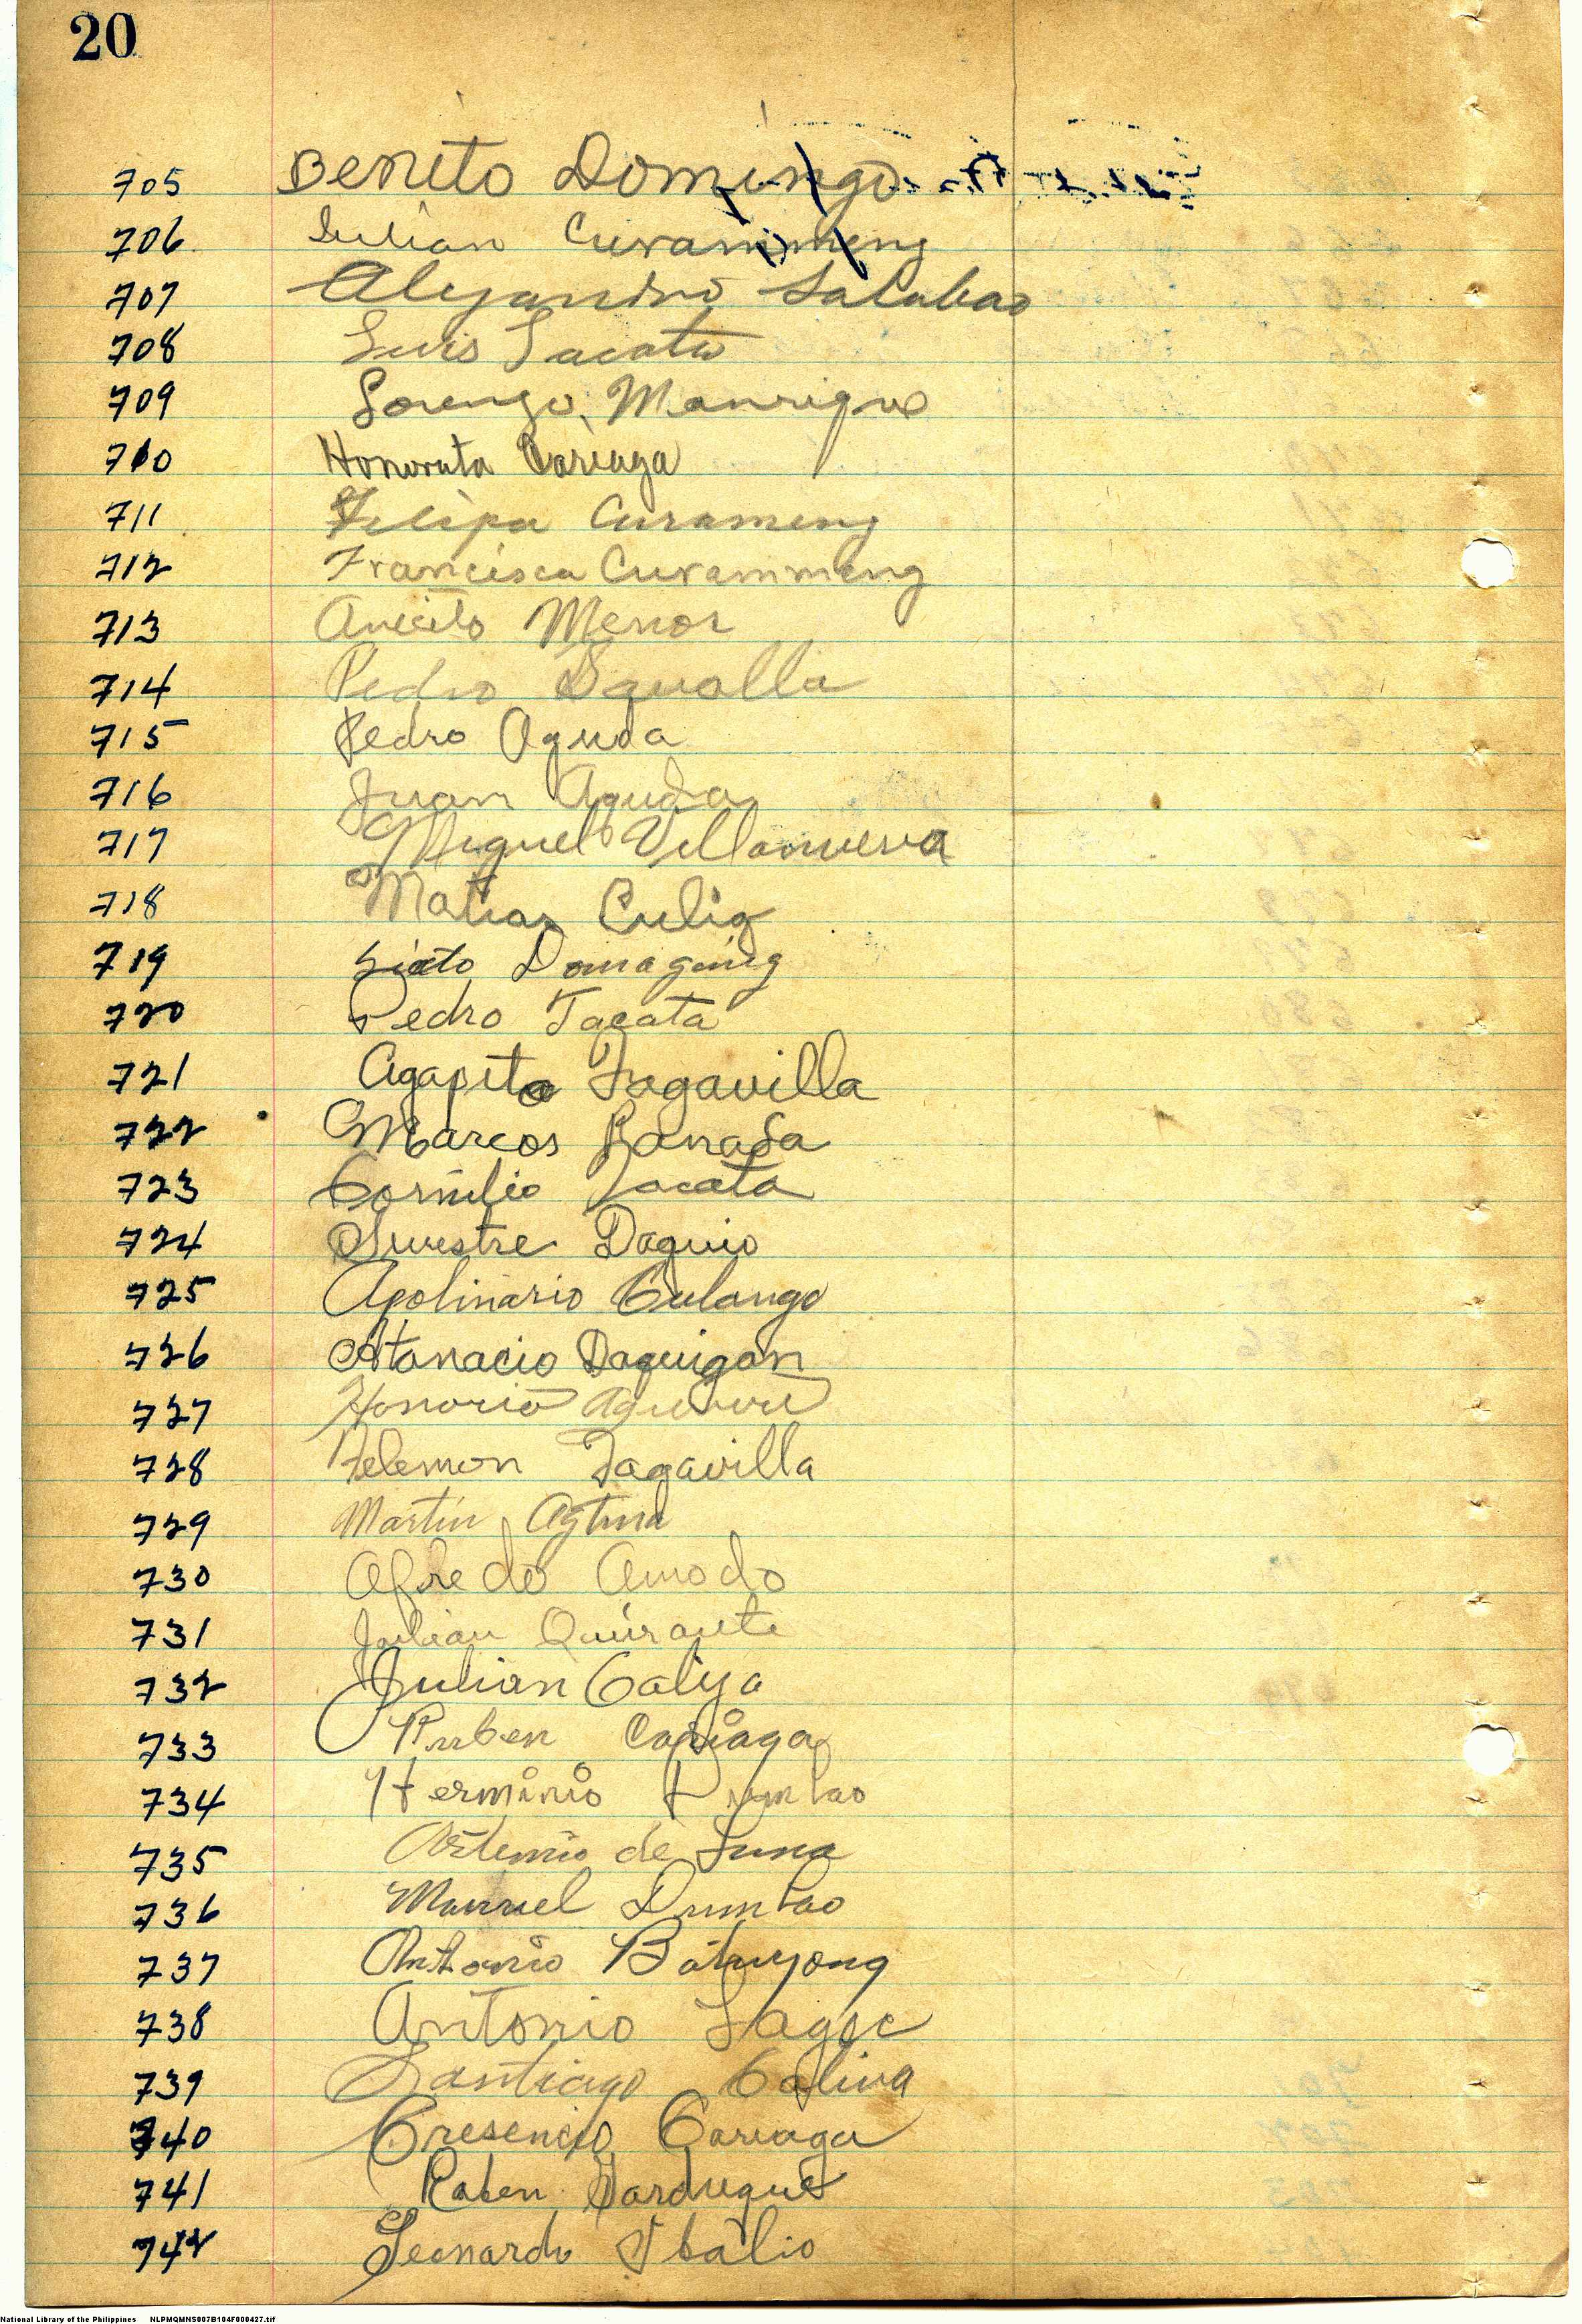 20
705 Benito Domingo
706 Julian Curammeng
707 Alejandro Salabao
708 Luis Tacata
709 Lorenzo Manrique
710 Honorata Cariaga
711 Felipa Curameng
712 Francisca Curammeng
713 Aniceto Menor
714 Pedro
715 Pedro Aguda
716 Juan Aguda
717 Miguel Villanueva
718 Matias Culig
719 Sixto Domaging
720 Pedro Tacata
721 Agapito Tagavilla
722 Marcos
723 Cornilio Tacata
724 Daguio
725 Apolinario Culango
726 Atanacio Daquigan
727 Honorio
728 Felemon Tagavilla
729 Martin
730 Alfredo Amodo
731 Julian Quirante
732 Julian Caliya
733 Ruben Cariaga
734 Herminio Dumlao
735 Artemio de Luna
736 Manuel Dumlao
737 Antonio Batuyong
738 Antonio
739 Santiago Caliva
740 Cresencio Cariaga
741 Ruben
742 Leonardo
National Library of the Philippines NLPMQMNS007B104F000427.tif